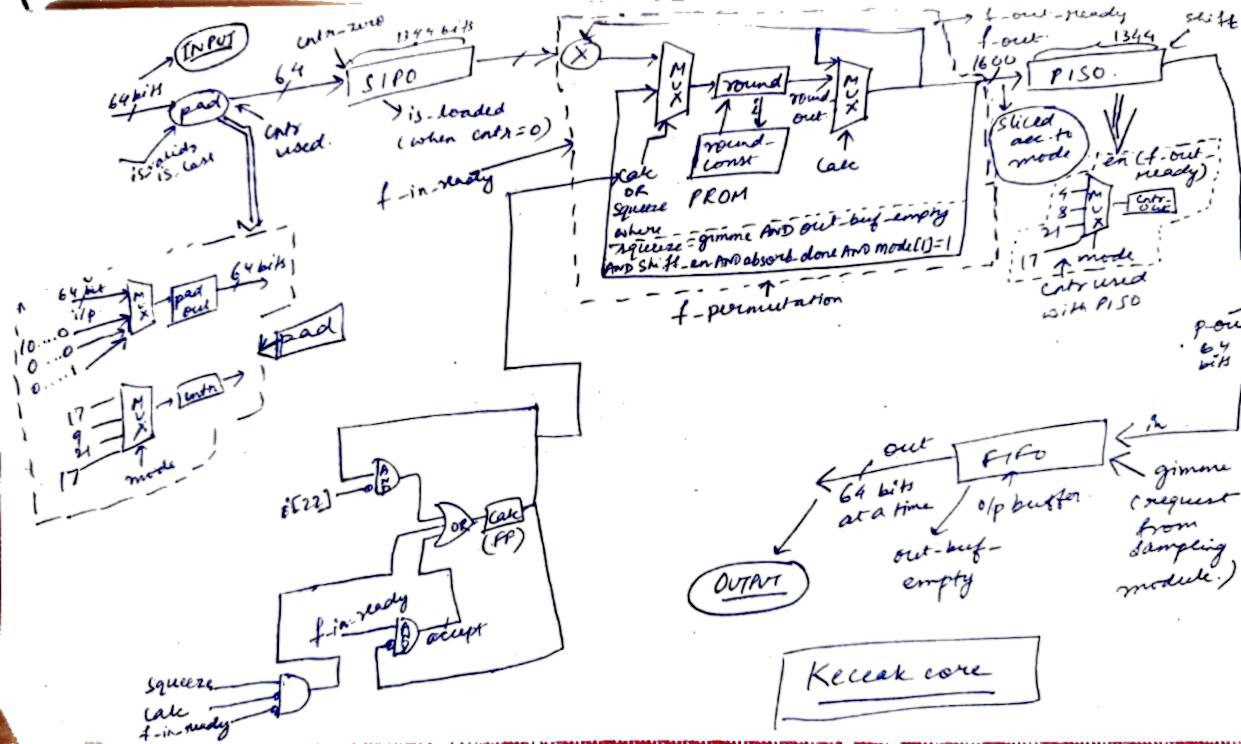 INPUT
64 bits
pad
isvalids
is_last
cntr
used.
64
cntr-zero
1344 bits
SIPO
is_loaded
(when cntr=0)
f_in_ready
X
MUX
round
round
out
i
round-
const
PROM
MUX
Calc
Calc
OR
Squeeze
where
squeeze=gimme AND out-buf-empty
AND shift_en AND absorb_done AND mode[1]=1
f_permutation
f-out-ready
f-out
1600
1344
shift
PISO.
sliced
acc. to
mode
en (f-out-
ready)
4
8
21
17
MUX
cntr-
out
mode
cntr used
with PISO
64 bit
i/p
10....0
0....0
0....1
MUX
pad
out
64 bits
pad
17
9
21
17
MUX
cntr
mode
i[22]
AND
OR
Calc
(FF)
f-in-ready
AND
accept
squeeze
calc
f-in-ready
p-ou
64
bits
in
FIFO
out
64 bits
at a time
o/p buffer
out-buf-
empty
gimme
(request
from
sampling
module.)
OUTPUT
Keccak core